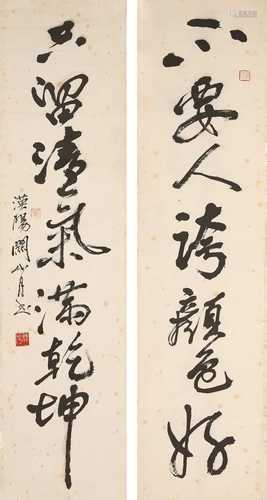 不要人誇顏色好
只留清氣滿乾坤
漢陽關山月書